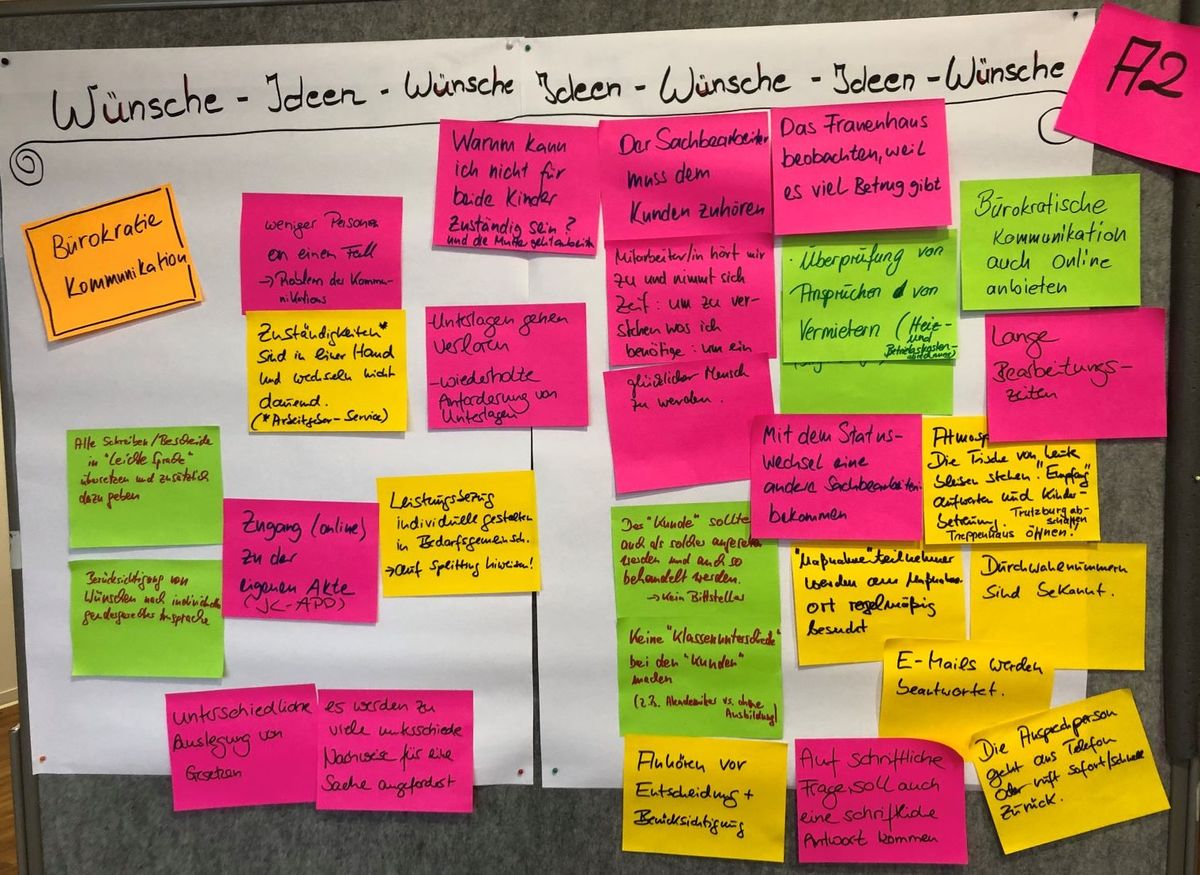 Wünsche - Ideen - Wünsche Ideen - Wünsche - Ideen - Wünsche
A2
Bürokratie
Kommunikation
weniger Personen
an einem Fall
→ Problem der Kommu-
nikations
Zuständigkeiten*
sind in einer Hand
und wechseln nicht
dauernd.
(*Arbeitgeber-Service)
Warum kann
ich nicht für
beide Kinder
Zuständig sein?
und die Mutter geht arbeiten
-Unterlagen gehen
verloren
-wiederholte
Anforderung von
Unterlagen
Der Sachbearbeiter
muss dem
Kunden zuhören
Mitarbeiter/in hört mir
zu und nimmt sich
Zeit: um zu ver-
stehen was ich
benötige: um ein
glücklicher Mensch
zu werden.
Das Frauenhaus
beobachten, weil
es viel Betrug gibt
· Überprüfung von
Ansprüchen von
Vermietern (Heiz-
und
Betriebskosten-
abrechnung)
Bürokratische
Kommunikation
auch Online
anbieten
Lange
Bearbeitungs-
zeiten
Alle Schreiben/Bescheide
in "Leichte Sprache"
übersetzen und zusätzlich
dazu geben
Berücksichtigung von
Wünschen nach individuell
gendergerechter Ansprache
Zugang (online)
zu der
eigenen Akte
(JC-APP)
Leistungsbezug
individuell gestalten
in Bedarfsgemeinsch.
→ auf Splittung hinweisen!
Mit dem Status-
Wechsel eine
andere Sachbearbeiter
bekommen
Atmosp
Die Tische von Leute
bleiben stehen. "Empfang"
aufwarten und Kinder-
betreuung. Trutzburg ab-
schaffen
Treppenhaus öffnen!
Der "Kunde" sollte
auch als solcher angesehen
werden und auch so
behandelt werden.
→ Kein Bittsteller
Keine "Klassenunterschiede"
bei den "Kunden"
machen
(z.B. Akademiker vs. ohne
Ausbildung)
"Maßnahme"teilnehmer
werden am Maßnahme-
ort regelmäßig
besucht
Durchwahlnummern
sind bekannt.
E-Mails werden
beantwortet.
unterschiedliche
Auslegung von
Gesetzen
es werden zu
viele unterschiede
Nachweise für eine
Sache angefordert
Anhören vor
Entscheidung +
Berücksichtigung
Auf schriftliche
Frage, soll auch
eine schriftliche
Antwort kommen
Die Ansprechperson
geht ans Telefon
oder ruft sofort/schnell
zurück.